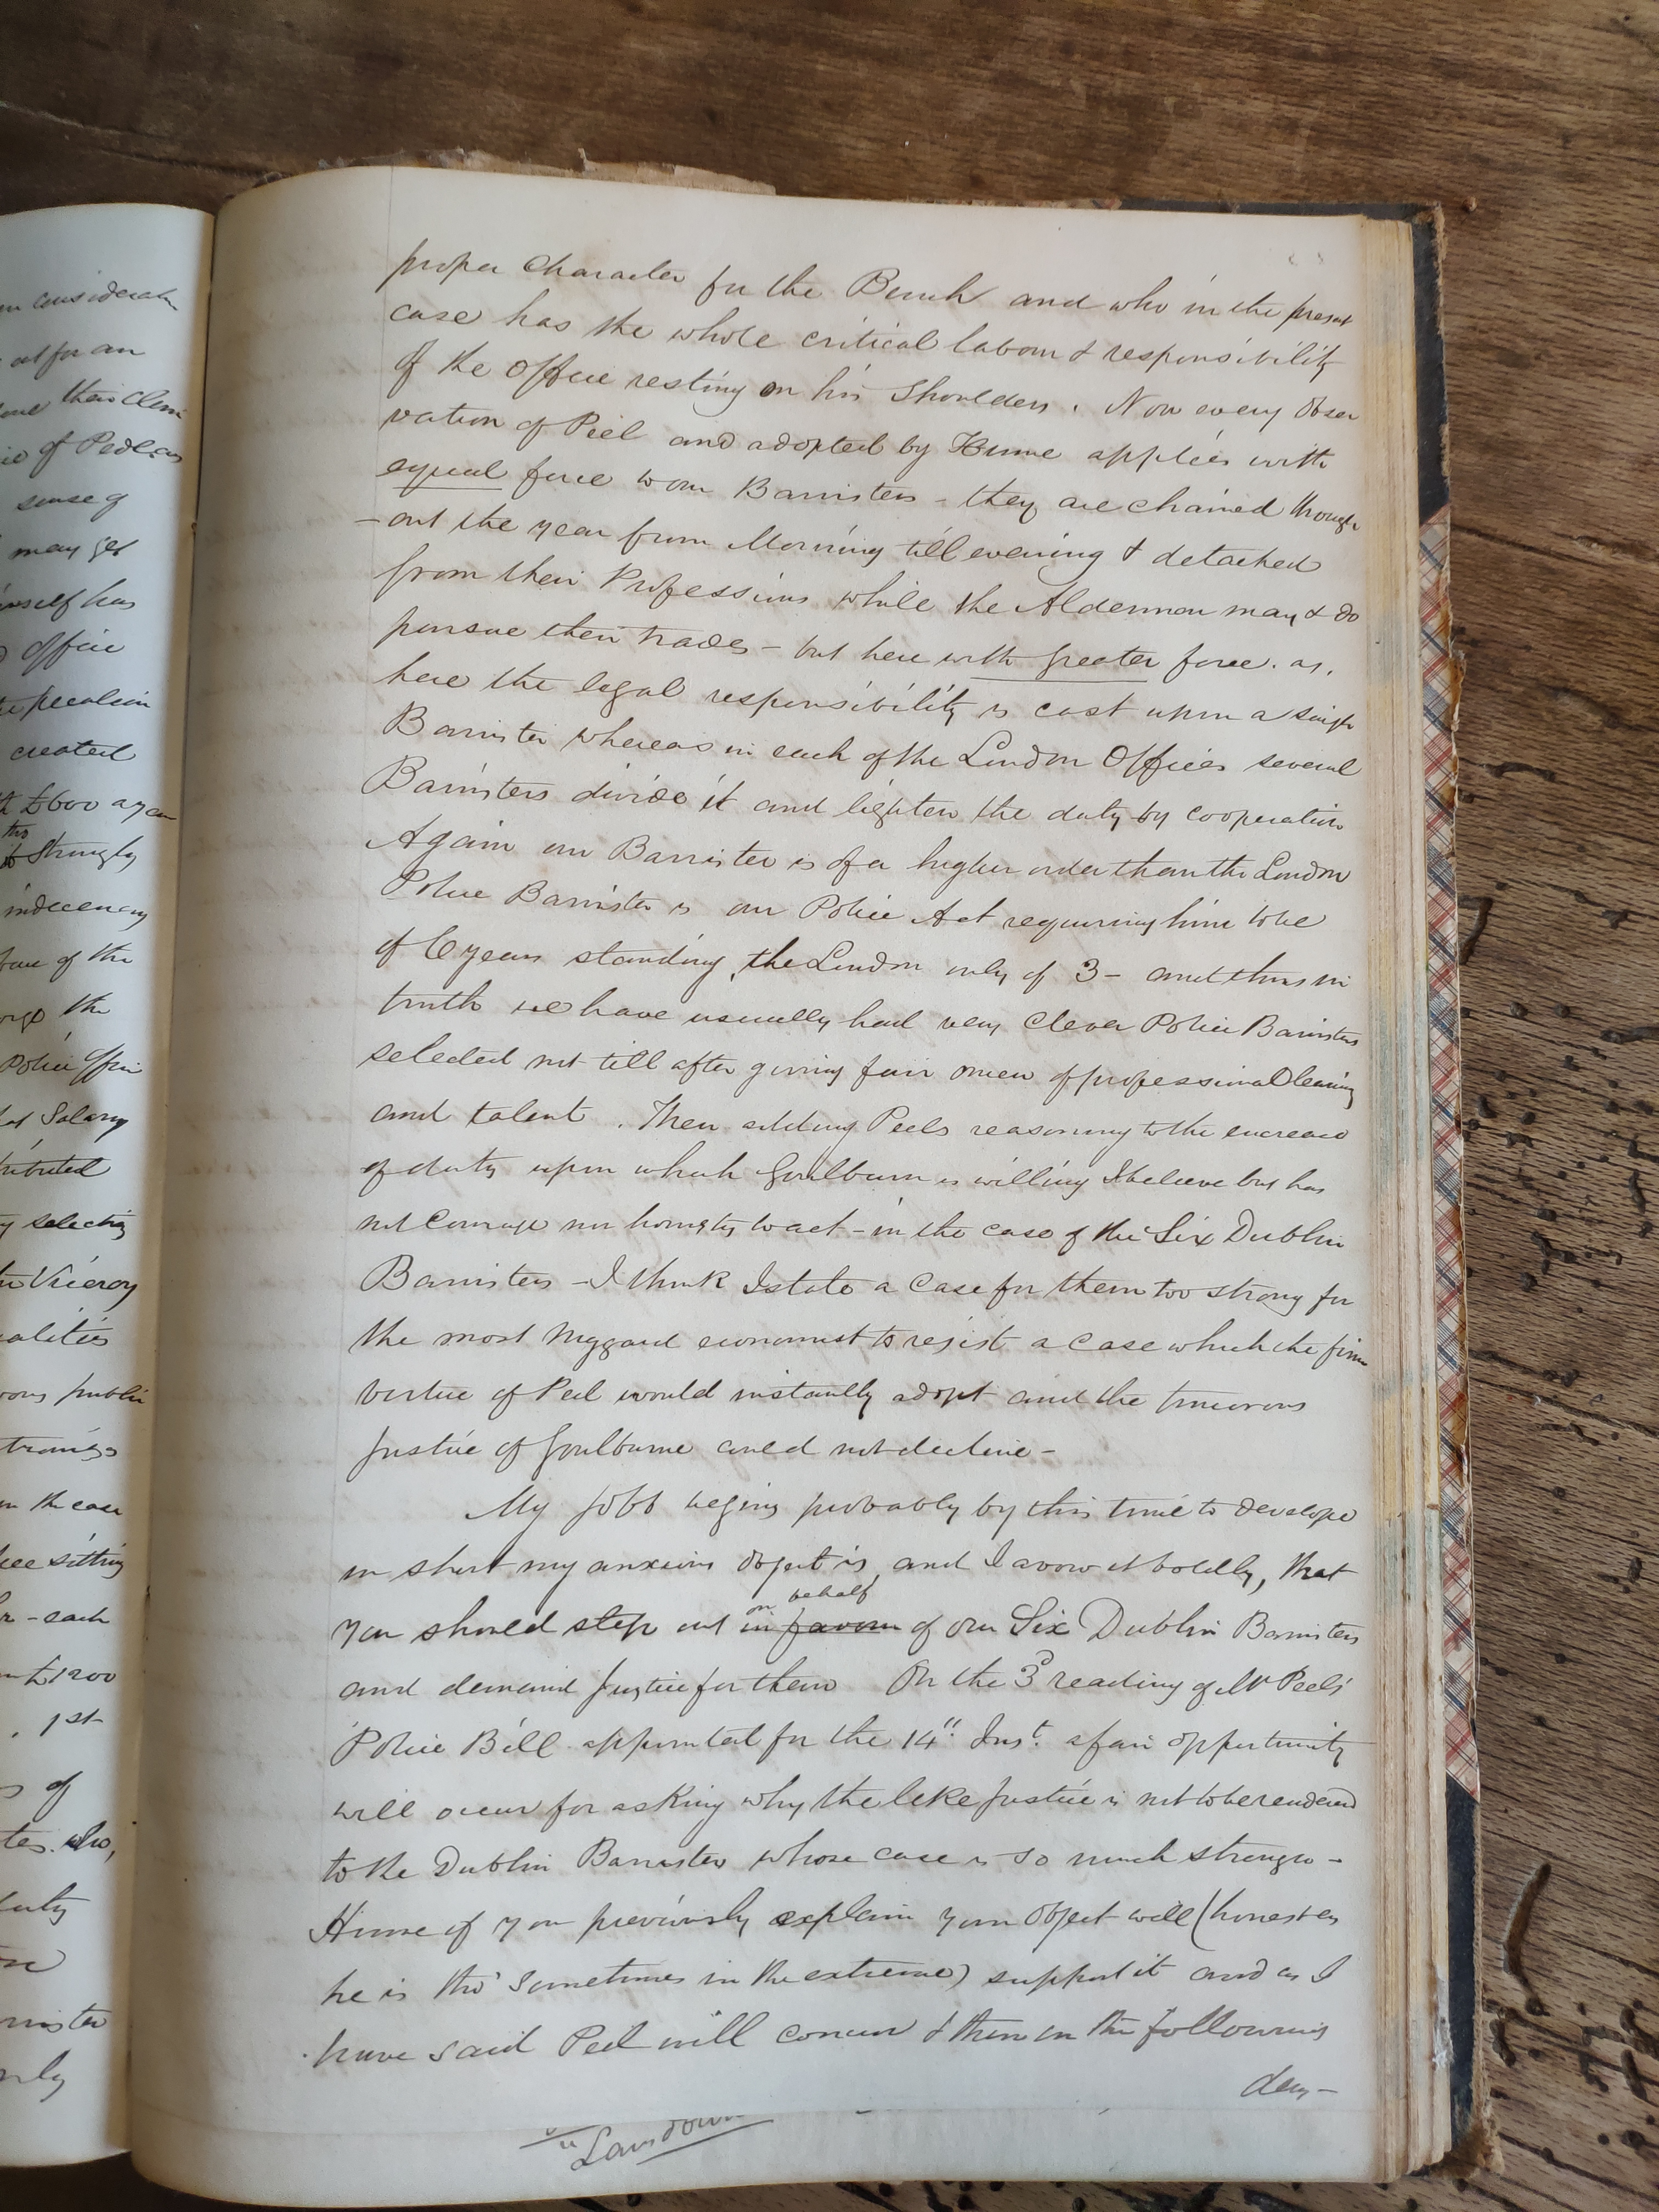 proper Character for the Bench and who in the present
case has the whole critical labour & responsibility
of the Office resting on his Shoulders. Now every obser
vation of Peel and adopted by Hume applies with
equal force to our Barristers - they are chained through
-out the year from Morning till evening & detached
from their Professions while the Aldermen may & do
pursue their trades - but here with greater force. as,
here the legal responsibility is cast upon a single
Barrister whereas in each of the London Offices several
Barristers divide it and lighten the duty by cooperation
Again our Barrister is of a higher order than the London
Police Barrister is our Police Act requiring him to be
of 6 years standing, the London only of 3 - and thus in
truth we have usually had very Clever Police Barristers
selected not till after giving fair omen of professional learning
and talent. Then adding Peels reasoning to the encrease
of duty upon which Goulburn is willing I believe but has
not Courage nor honesty to act - in the case of the Six Dublin
Barristers - I think I state a Case for them too strong for
the most niggard economist to resist a Case which the firm
virtue of Peel would instantly adopt and the timorous
Justice of Goulburne could not decline -
My Jobb begins probably by this time to develope
in short my anxious object is, and I avow it boldly, that
on behalf
you should step out in favour of our Six Dublin Barristers
and demand Justice for them On the 3d reading of Mr Peels'
Police Bill appointed for the 14" Inst. a fair opportunity
will occur for asking why the like Justice is not to be rendered
to the Dublin Barrister whose case is so much stronger -
Hume if you previously explain your Object will (honest as
he is tho' sometimes in the extreme) support it and as I
have said Peel will concur & then on the following
day -
Lansdown
en consideratn
out for an
their Clerk
of Pedlars
sense of
may get
himself has
office
peculiar
created
£600 a year
this
strongly
indecency
of the
the
Police Offic
Salary
tributed
selecting
Viceroy
alities
public
in the case
sitting
- each
£1200
1st
of
who,
duty